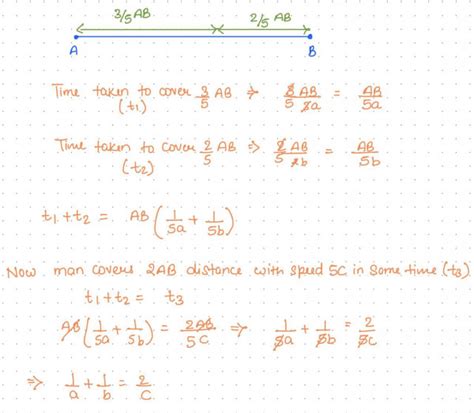 3/5 AB 2/5 AB
A B
Time taken to cover 3/5 AB ⇒ 3 AB / 5 3a = AB / 5a
(t₁)
Time taken to cover 2/5 AB ⇒ 2 AB / 5 2b = AB / 5b
(t₂)
t₁ + t₂ = AB (1/5a + 1/5b)
Now man covers 2AB distance with speed 5C in some time (t₃)
t₁ + t₂ = t₃
AB (1/5a + 1/5b) = 2AB / 5C ⇒ 1/5a + 1/5b = 2/5C
⇒ 1/a + 1/b = 2/C